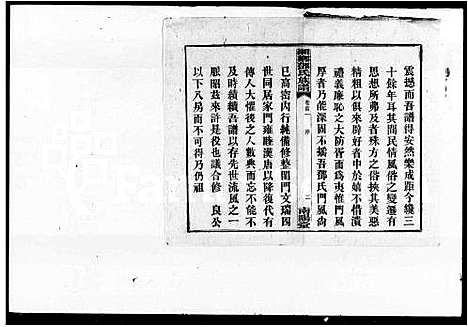 震撼而吾譜得安然樂成距今纔三
十餘年耳其間民情風俗之變遷有
思想所弗及者殊方之俗挾其美惡
精粗以俱來辟好者中於嬉不惜潰
禮義廉恥之大防胥而爲夷惟門風
厚者乃能深固不搖吾鄧氏門風尚
鄧氏族譜
卷首
序
二
南陽堂
已高密內行純備修整閨門文瑞四
世同居家門雍睦漢唐以降復代有
傳人大懼後之人數典而忘不能不
及時續吾譜以存先世流風之一
脈昭茲來許是役也議合修 良公
以下八房而不可得乃仍祖